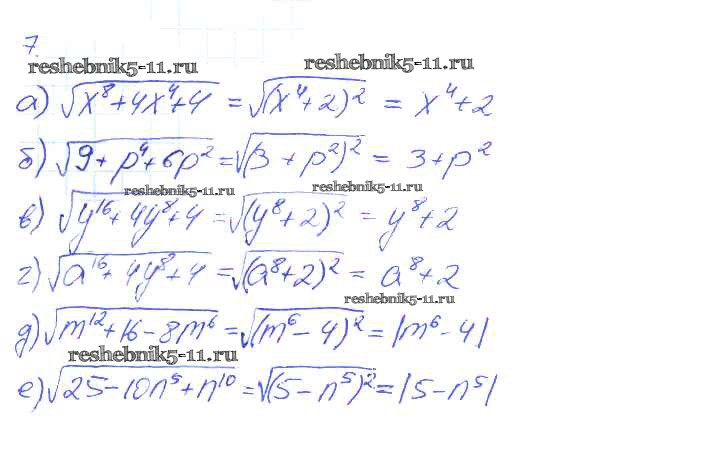 7.
reshebnik5-11.ru reshebnik5-11.ru
а) √(x⁸+4x⁴+4) = √(x⁴+2)² = x⁴+2
б) √(9+p⁴+6p²) = √(3+p²)² = 3+p²
reshebnik5-11.ru reshebnik5-11.ru
в) √(y¹⁶+4y⁸+4) = √(y⁸+2)² = y⁸+2
г) √(a¹⁶+4y⁸+4) = √(a⁸+2)² = a⁸+2
reshebnik5-11.ru
д) √(m¹²+16-8m⁶) = √(m⁶-4)² = |m⁶-4|
reshebnik5-11.ru
е) √(25-10n⁵+n¹⁰) = √(5-n⁵)² = |5-n⁵|